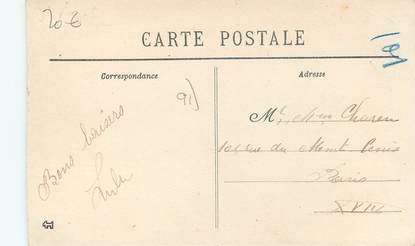 20 €
CARTE POSTALE
Correspondance
Adresse
91)
Bons baisers
Lulu
Mr, Mme Charon
101 rue du Mont Cenis
Paris
XVIII